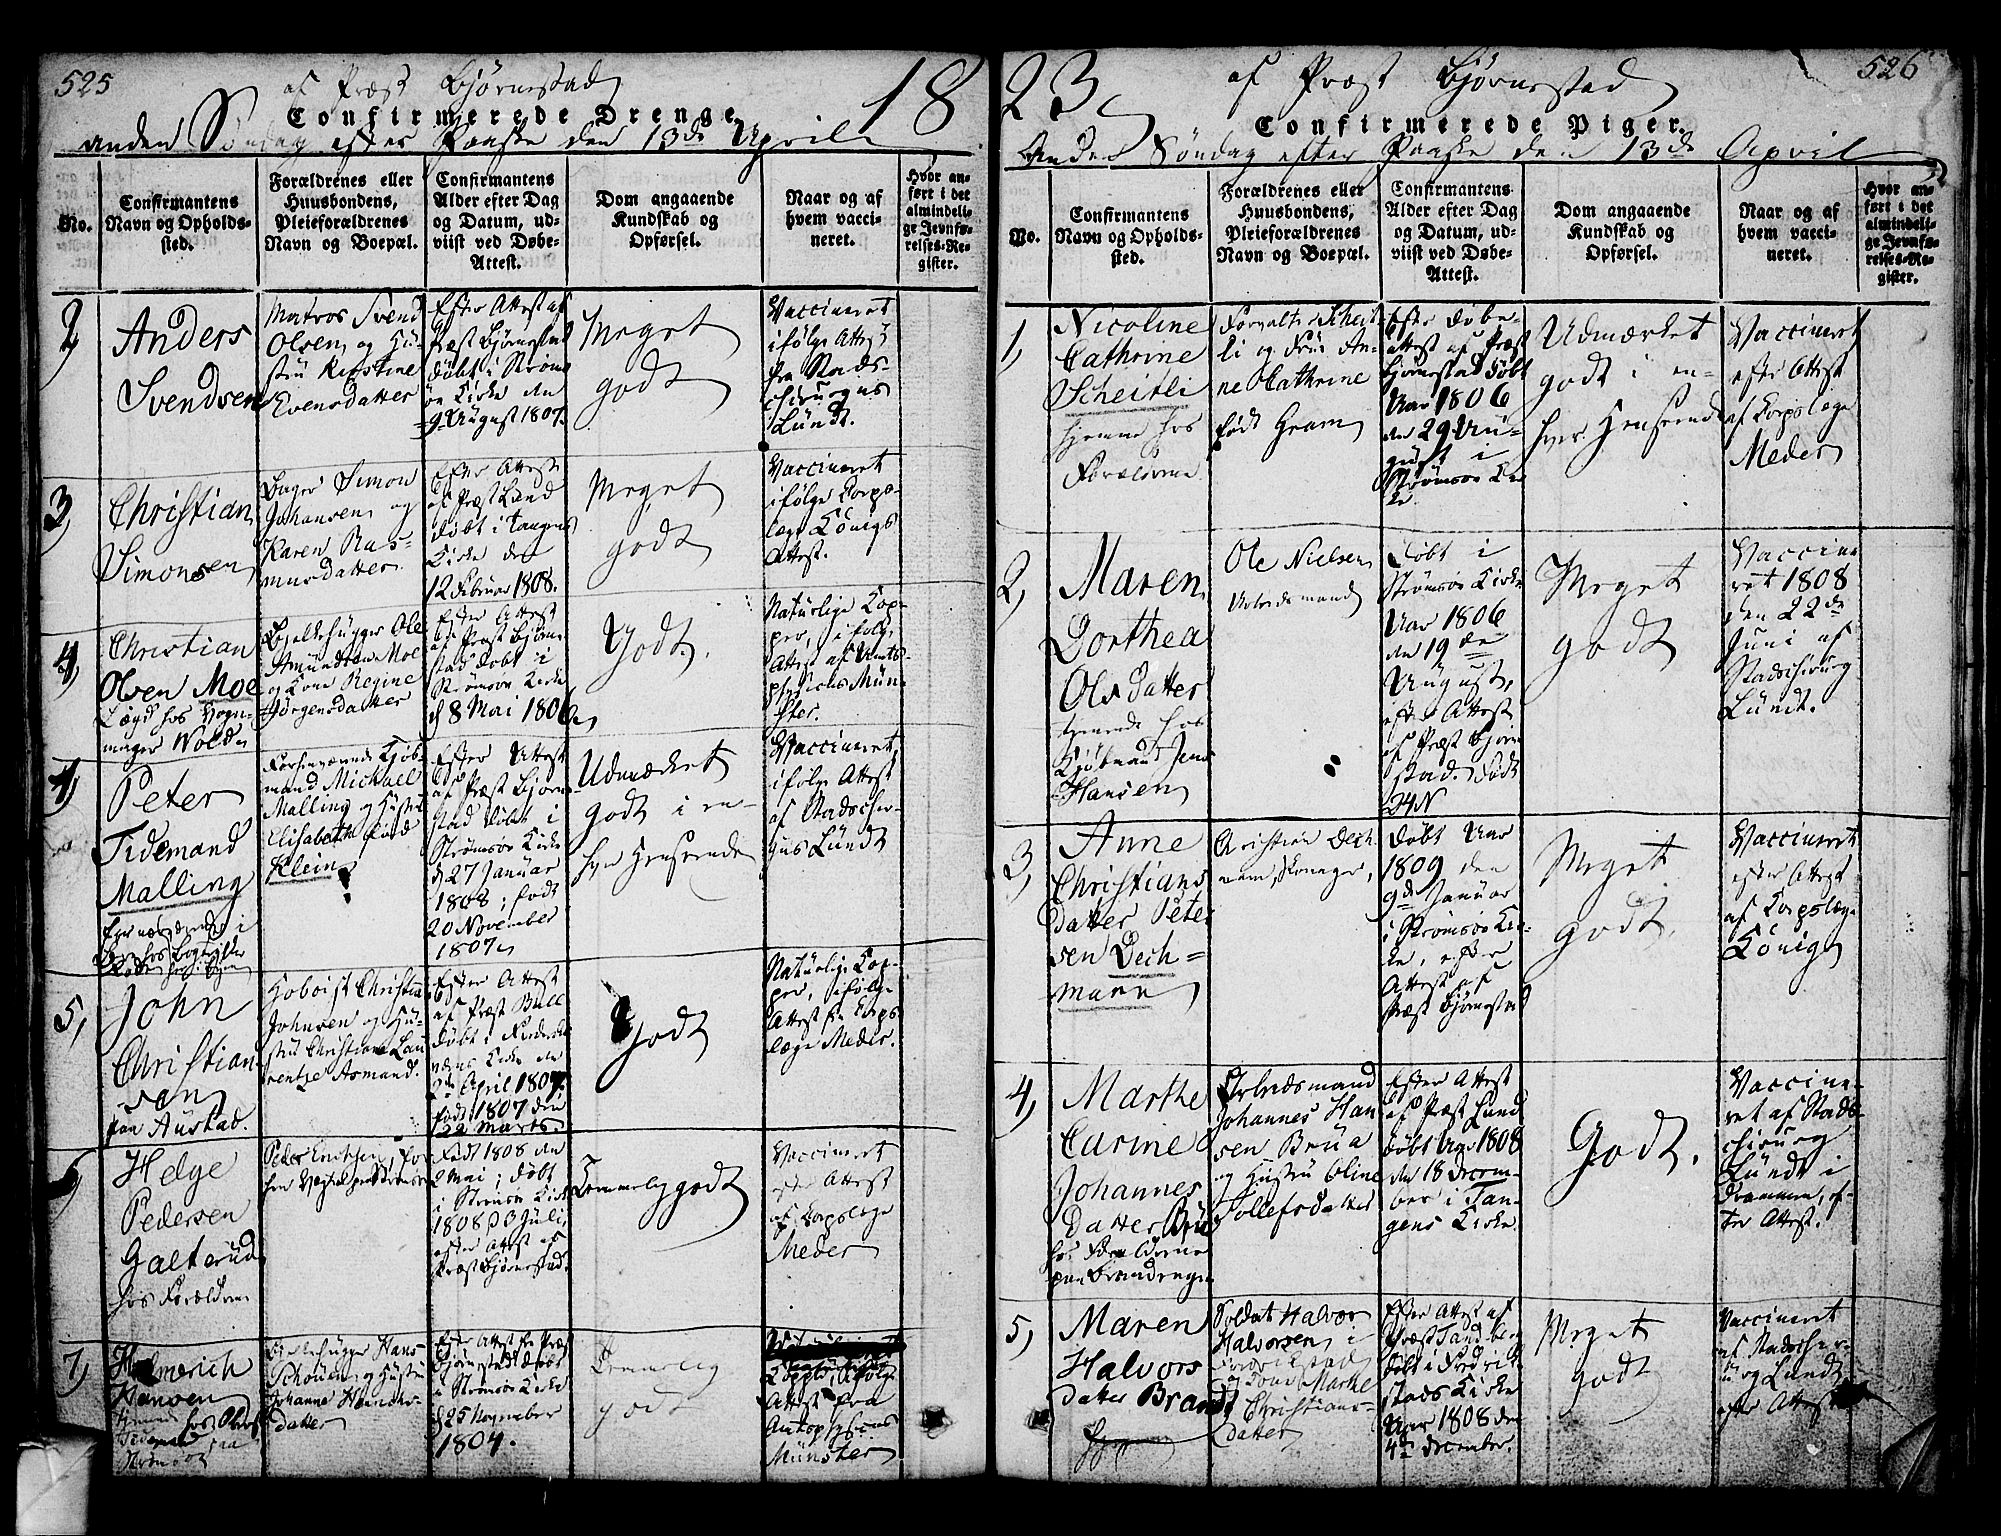 525
af Præst Bjørnestad
18
Confirmerede Drenge
anden Søndag efter Paaske den 13de April
No.
Confirmantens
Navn og Opholds-
sted.
Forældrenes eller
Huusbondens,
Pleieforældrenes
Navn og Boepæl.
Confirmantens
Alder efter Dag
og Datum, ud-
viist ved Døbe-
Attest.
Dom angaaende
Kundskab og
Opførsel.
Naar og af
hvem vacci-
neret.
Hvor an-
ført i det
almindeli-
ge Jevnfø-
relses-Re-
gister.
2,
Anders
Svendsen
Matros Svend
Olsen og Hu-
stru Kirstine
Evensdatter
Efter Attest af
Præst Bjørnestad
døbt i Strøms-
øe Kirke den
9 August 1807.
Meget
godt
Vaccineret
ifølge Attest
fra Stads-
chirurgus
Lundt.
3,
Christian
Simonsen
Simon
Johansen og
Karen Ras-
musdatter
Efter Attest
af Præst Lund
døbt i Tangens
Kirke den
12 Februar 1808.
Meget
godt
Vaccineret
ifølge Corps-
læge Königs
Attest.
4,
Christian
Olsen Moe
Bielkehugger Ole
Amundsen Moe
og Kone Regine
Jørgensdatter
Efter Attest
af Præst Bjørne-
stad døbt i
Strømsøe Kirke
d 8 Mai 1806
Godt.
Naturlige Kop-
per, ifølge
Attest af Amts-
physicus Mün-
ster.
4,
Peter
Tidemand
Malling
Forhenværende Kjøb-
mand Michael
Malling og Hustru
Elisabeth född
Klein
Efter Attest
af Præst Bjørne-
stad døbt i
Strømsøe Kirke
d 27 Januar
1808; født
20 November
1807
Udmærket
godt i en-
hver Henseende
Vaccineret,
ifølge Attest
af Stadschirur-
gus Lundt
5,
John
Christian-
sen
paa Austad.
Hoboist Christian
Johnsen og Hu-
stru Christiane Lau-
rentze Asmand.
Efter Attest
af Præst Bull
døbt i
Kirke den
April 1807.
født 1807 den
22 Marts.
Godt
Naturlige Kop-
per, ifølge
Attest fra Corps-
læge Meder.
6,
Helge
Pedersen
Galterud
hos Forældrene
Født 1808 den
2 Mai; døbt
i Strømsøe Kirke
1808 d 3 Juli,
efter Attest af
Præst Bjørnestad.
Temmelig godt
Vaccineret
efter Attest
af Corpslæge
Meder
7,
Helmerich
Hansen
Strømsøe
Bielkehugger Hans
Schouen og Hustru
Johanne
datter
Efter Attest fra Præst
Bjørnestad døbt
i Strømsøe Kirke
d 25 November
1804.
Temmelig
godt
Kopper, ifølge
Attest fra
Münster
23
526
af Præst Bjørnestad
Confirmerede Piger.
Anden Søndag efter Paaske den 13de April
No.
Confirmantens
Navn og Opholds-
sted.
Forældrenes eller
Huusbondens,
Pleieforældrenes
Navn og Boepæl.
Confirmantens
Alder efter Dag
og Datum, ud-
viist ved Døbe-
Attest.
Dom angaaende
Kundskab og
Opførsel.
Naar og af
hvem vacci-
neret.
Hvor an-
ført i det
almindeli-
ge Jevnfø-
relses-Re-
gister.
1,
Nicoline
Cathrine
Scheitli
hjemme hos
Forældrene
Forvalter Scheit-
li og Frue An-
ne Cathrine
født Gram
Efter Døbe-
attest af Præst
Bjørnestad døbt
Aar 1806
den 29 Au-
gust i
Strømsøe Kir-
ke.
Udmærket
godt i en-
hver Henseende
Vaccineret
efter Attest
af Corpslæge
Meder
2,
Maren
Dorthea
Olsdatter
tjenende hos
Kjøbmand Jens
Hansen
Ole Nielsen
Arbeidsmand
Døbt i
Strømsøe Kirke
Aar 1806
den 19de
August,
efter Attest
af Præst Bjørne-
stad. Født
24
Meget
godt
Vaccine-
ret 1808
den 22de
Juni af
Stadschirurg
Lundt.
3,
Anne
Christians
datter Peter-
sen Dech=
mann
Christian Dech-
mann,
Døbt Aar
1809 den
9de Januar
i Strømsøe Kir-
ke, efter
Attest af
Præst Bjørnestad
Meget
godt.
Vaccineret
efter Attest
af Corpslæge
König
4,
Marthe
Carine
Johannes
datter Brua
hos Forældrene
paa Brandengen
Arbeidsmand
Johannes Han-
sen Brua
og Hustru Oline
Tollefsdatter
Efter Attest
af Præst Lund
døbt Aar 1808
den 18 Decem-
ber i Tan-
gens Kirke
Godt.
Vaccine-
ret af Stads-
chirurg
Lundt i
Drammen, ef-
ter Attest.
5,
Maren
Halvors
datter Brandt
Soldat Halvor
Halvorsen i
Fridrikstad
og Kone Marthe
Christians-
datter
Efter Attest af
Præst Sandberg
døbt i Fredrik-
stads Kirke
Aar 1808 den
4de December.
Meget
godt
Vaccineret
af Stadschir-
urg Lundt
efter Attest